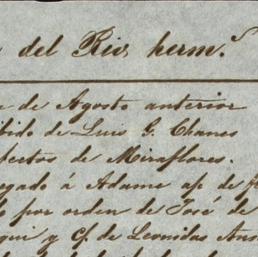 del Rio, herm.s
de Agosto anterior
bido de Luis G. Chanes
pertos de Miraflores.
egado á Adame ap. de
por orden de José de
gui y Cp. de Leonidas